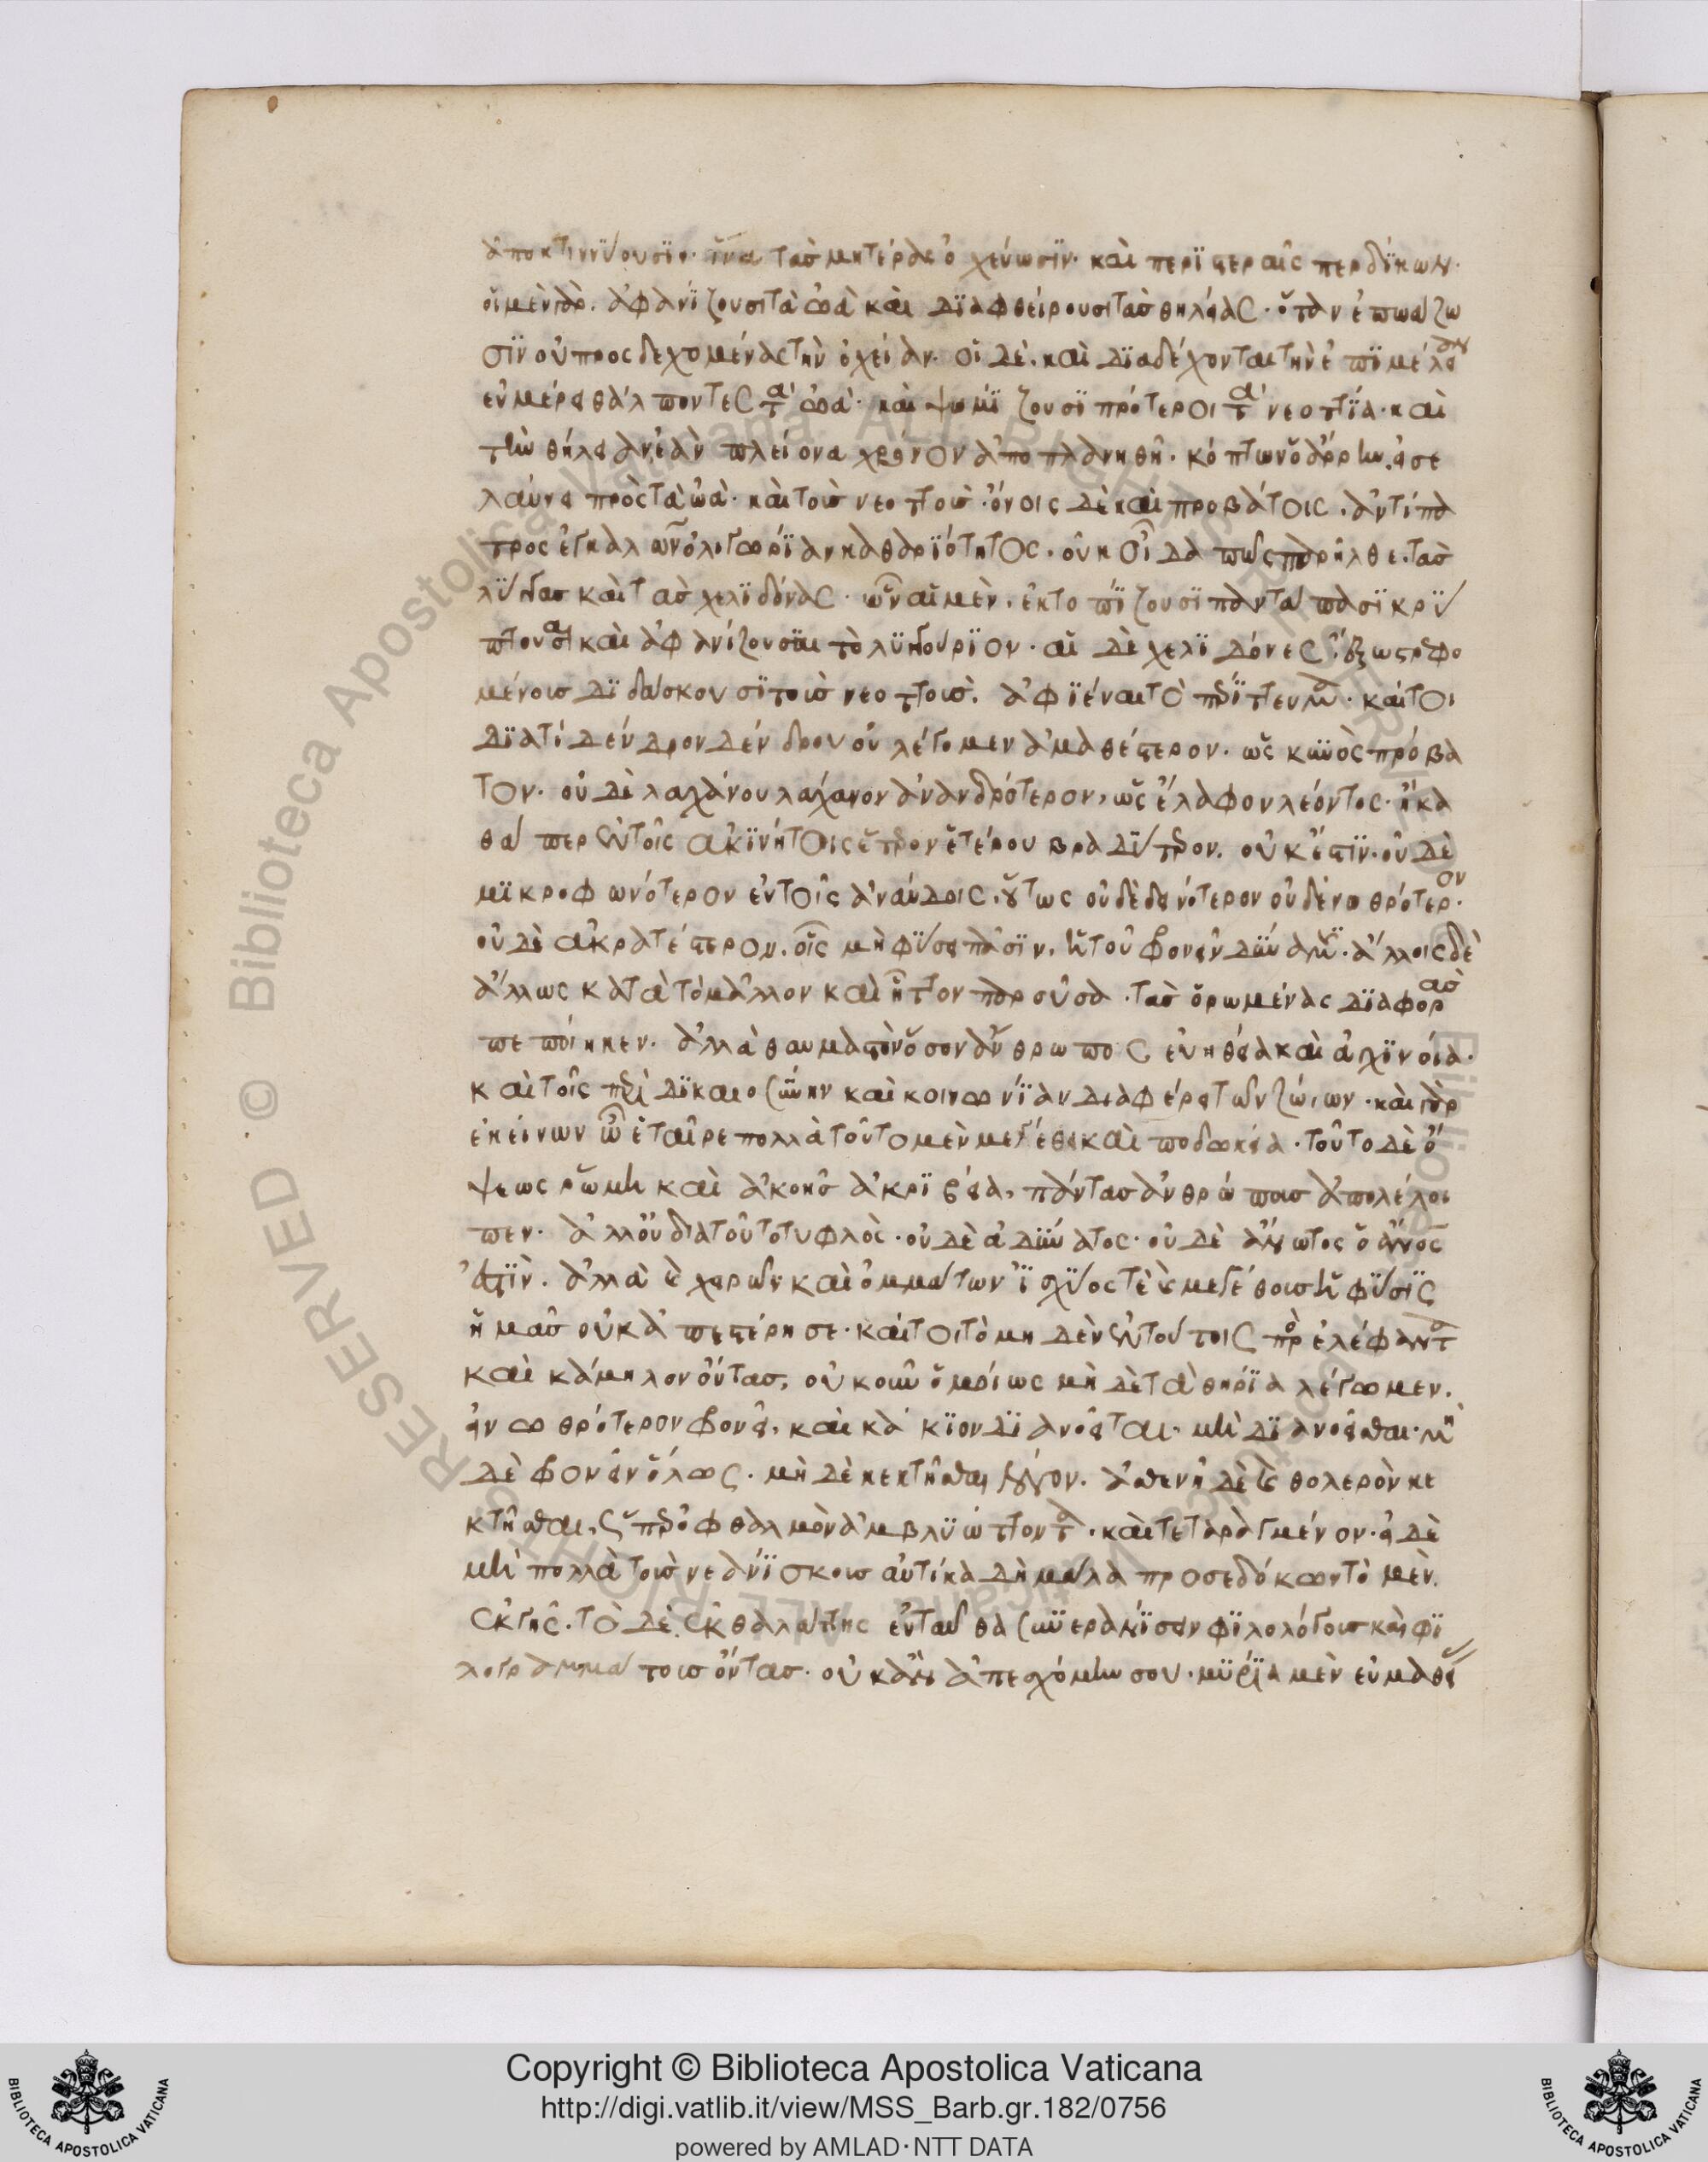 ἀποκτιννύουσιν· ἵνα τὰς μητέρας ὀχεύωσιν· καὶ περιστεραῖς περδίκων·
οἱ μὲν γὰρ. ἀφανίζουσι τὰ ὠὰ καὶ διαφθείρουσι τὰς θηλείας· ὅταν ἐπωάζω
σιν οὐ προσδεχομένας τὴν ὀχείαν· οἱ δὲ. καὶ διαδέχονται τὴν ἐπιμέλειαν
ἐν μέρει θάλποντες τὰ ὠά· καὶ ψωμίζουσι πρότεροι τὰ νεοττία· καὶ
τὴν θήλειαν, ἐὰν πλείονα χρόνον ἀποπλανηθῆ· κόπτων ὁ ἄρρην, εἰσε
λαύνει πρὸς τὰ ὠὰ· καὶ τοὺς νεοττούς· ὄνοις δὲ καὶ προβάτοις, ἀντίπα
τρος ἐγκαλῶν ὀλιγωρίαν καθαριότητος, οὐκ οἶδα πῶς παρῆλθε, τὰς
λύγκας καὶ τὰς χελιδόνας· ὧν αἱ μὲν, ἐκτοπίζουσι παντάπασι κρύ
πτουσαι καὶ ἀφανίζουσαι τὸ λυγκούριον· αἱ δὲ χελιδόνες, ἔξω στρεφο
μένους διδάσκουσι τοὺς νεοττούς, ἀφιέναι τὸ περίττευμα· καίτοι
διατί δένδρον δένδρου οὐ λέγομεν ἀμαθέστερον· ὡς κυνὸς πρόβα
τον· οὐδὲ λαχάνου λάχανον ἀνανδρότερον, ὡς ἔλαφον λέοντος· ἢ κα
θάπερ ἐν τοῖς ἀκινήτοις ἕτερον ἑτέρου βραδύτερον, οὐκ ἔστιν· οὐδὲ
μικροφωνότερον ἐν τοῖς ἀναύδοις, οὕτως οὐδὲ δεινότερον οὐδὲ νωθρότερον·
οὐδὲ ἀκρατέστερον, οἷς μὴ φύσει πᾶσιν, ἡ τοῦ φρονεῖν δύναμις· ἄλλοις δὲ
ἄλλως κατὰ τὸ μᾶλλον καὶ ἧττον παροῦσα· τὰς ὁρωμένας διαφορὰς
πεποίηκεν· ἀλλὰ θαυμαστὸν ὅσον ἄνθρωπος εὐηθεία καὶ ἀγχινοία·
καὶ τοῖς περὶ δικαιοσύνην καὶ κοινωνίαν διαφέρει τῶν ζώιων· καὶ γὰρ
ἐκείνων ὦ ἑταῖρε πολλὰ τοῦτο μὲν μεγέθει καὶ ποδωκεία· τοῦτο δὲ ὄ
ψεως ῥώμη καὶ ἀκοῆς ἀκριβεία, πάντας ἀνθρώπους ἀπολέλοι
πεν· ἀλλ' οὐ διὰ τοῦτο τυφλὸς· οὐδὲ ἀδύνατος· οὐδὲ ἄνωτος ὁ ἄνος
ἐστὶν. ἀλλὰ καὶ χειρῶν καὶ ὀμμάτων ἰσχύος τὲ καὶ μεγέθους ἡ φύσις
ἡμᾶς οὐκ ἀπεστέρησε· καίτοι τὸ μηδὲν ἐν τούτοις πρὸς ἐλέφαντα
καὶ κάμηλον ὄντας, οὐκοῦν ὁμοίως μὴ δὲ τὰ θηρία λέγωμεν,
εἰ νωθρότερον φρονεῖ, καὶ κάκιον διανοεῖται· μὴ διανοεῖσθαι· μη
δὲ φρονεῖν ὅλως. μὴ δὲ κεκτῆσθαι λόγον. ἀσθενῆ δὲ καὶ θολερὸν κε
κτῆσθαι, ὥσπερ ὀφθαλμὸν ἀμβλυώττοντα· καὶ τεταραγμένον· εἰ δὲ
μὴ πολλὰ τοὺς νεανίσκους αὐτίκα δὴ μάλα προσεδόκων τὸ μὲν,
ἐκ γῆς· τὸ δὲ ἐκ θαλάττης ἐνταῦθα συνερανίσειν φιλολόγους καὶ φι
λογραμμάτους ὄντας· οὐκ ἂν ἀπεσχόμην σου· μυρία μὲν εὐμαθεί
Copyright © Biblioteca Apostolica Vaticana
http://digi.vatlib.it/view/MSS_Barb.gr.182/0756
powered by AMLAD·NTT DATA
BIBLIOTECA APOSTOLICA VATICANA
BIBLIOTECA APOSTOLICA VATICANA